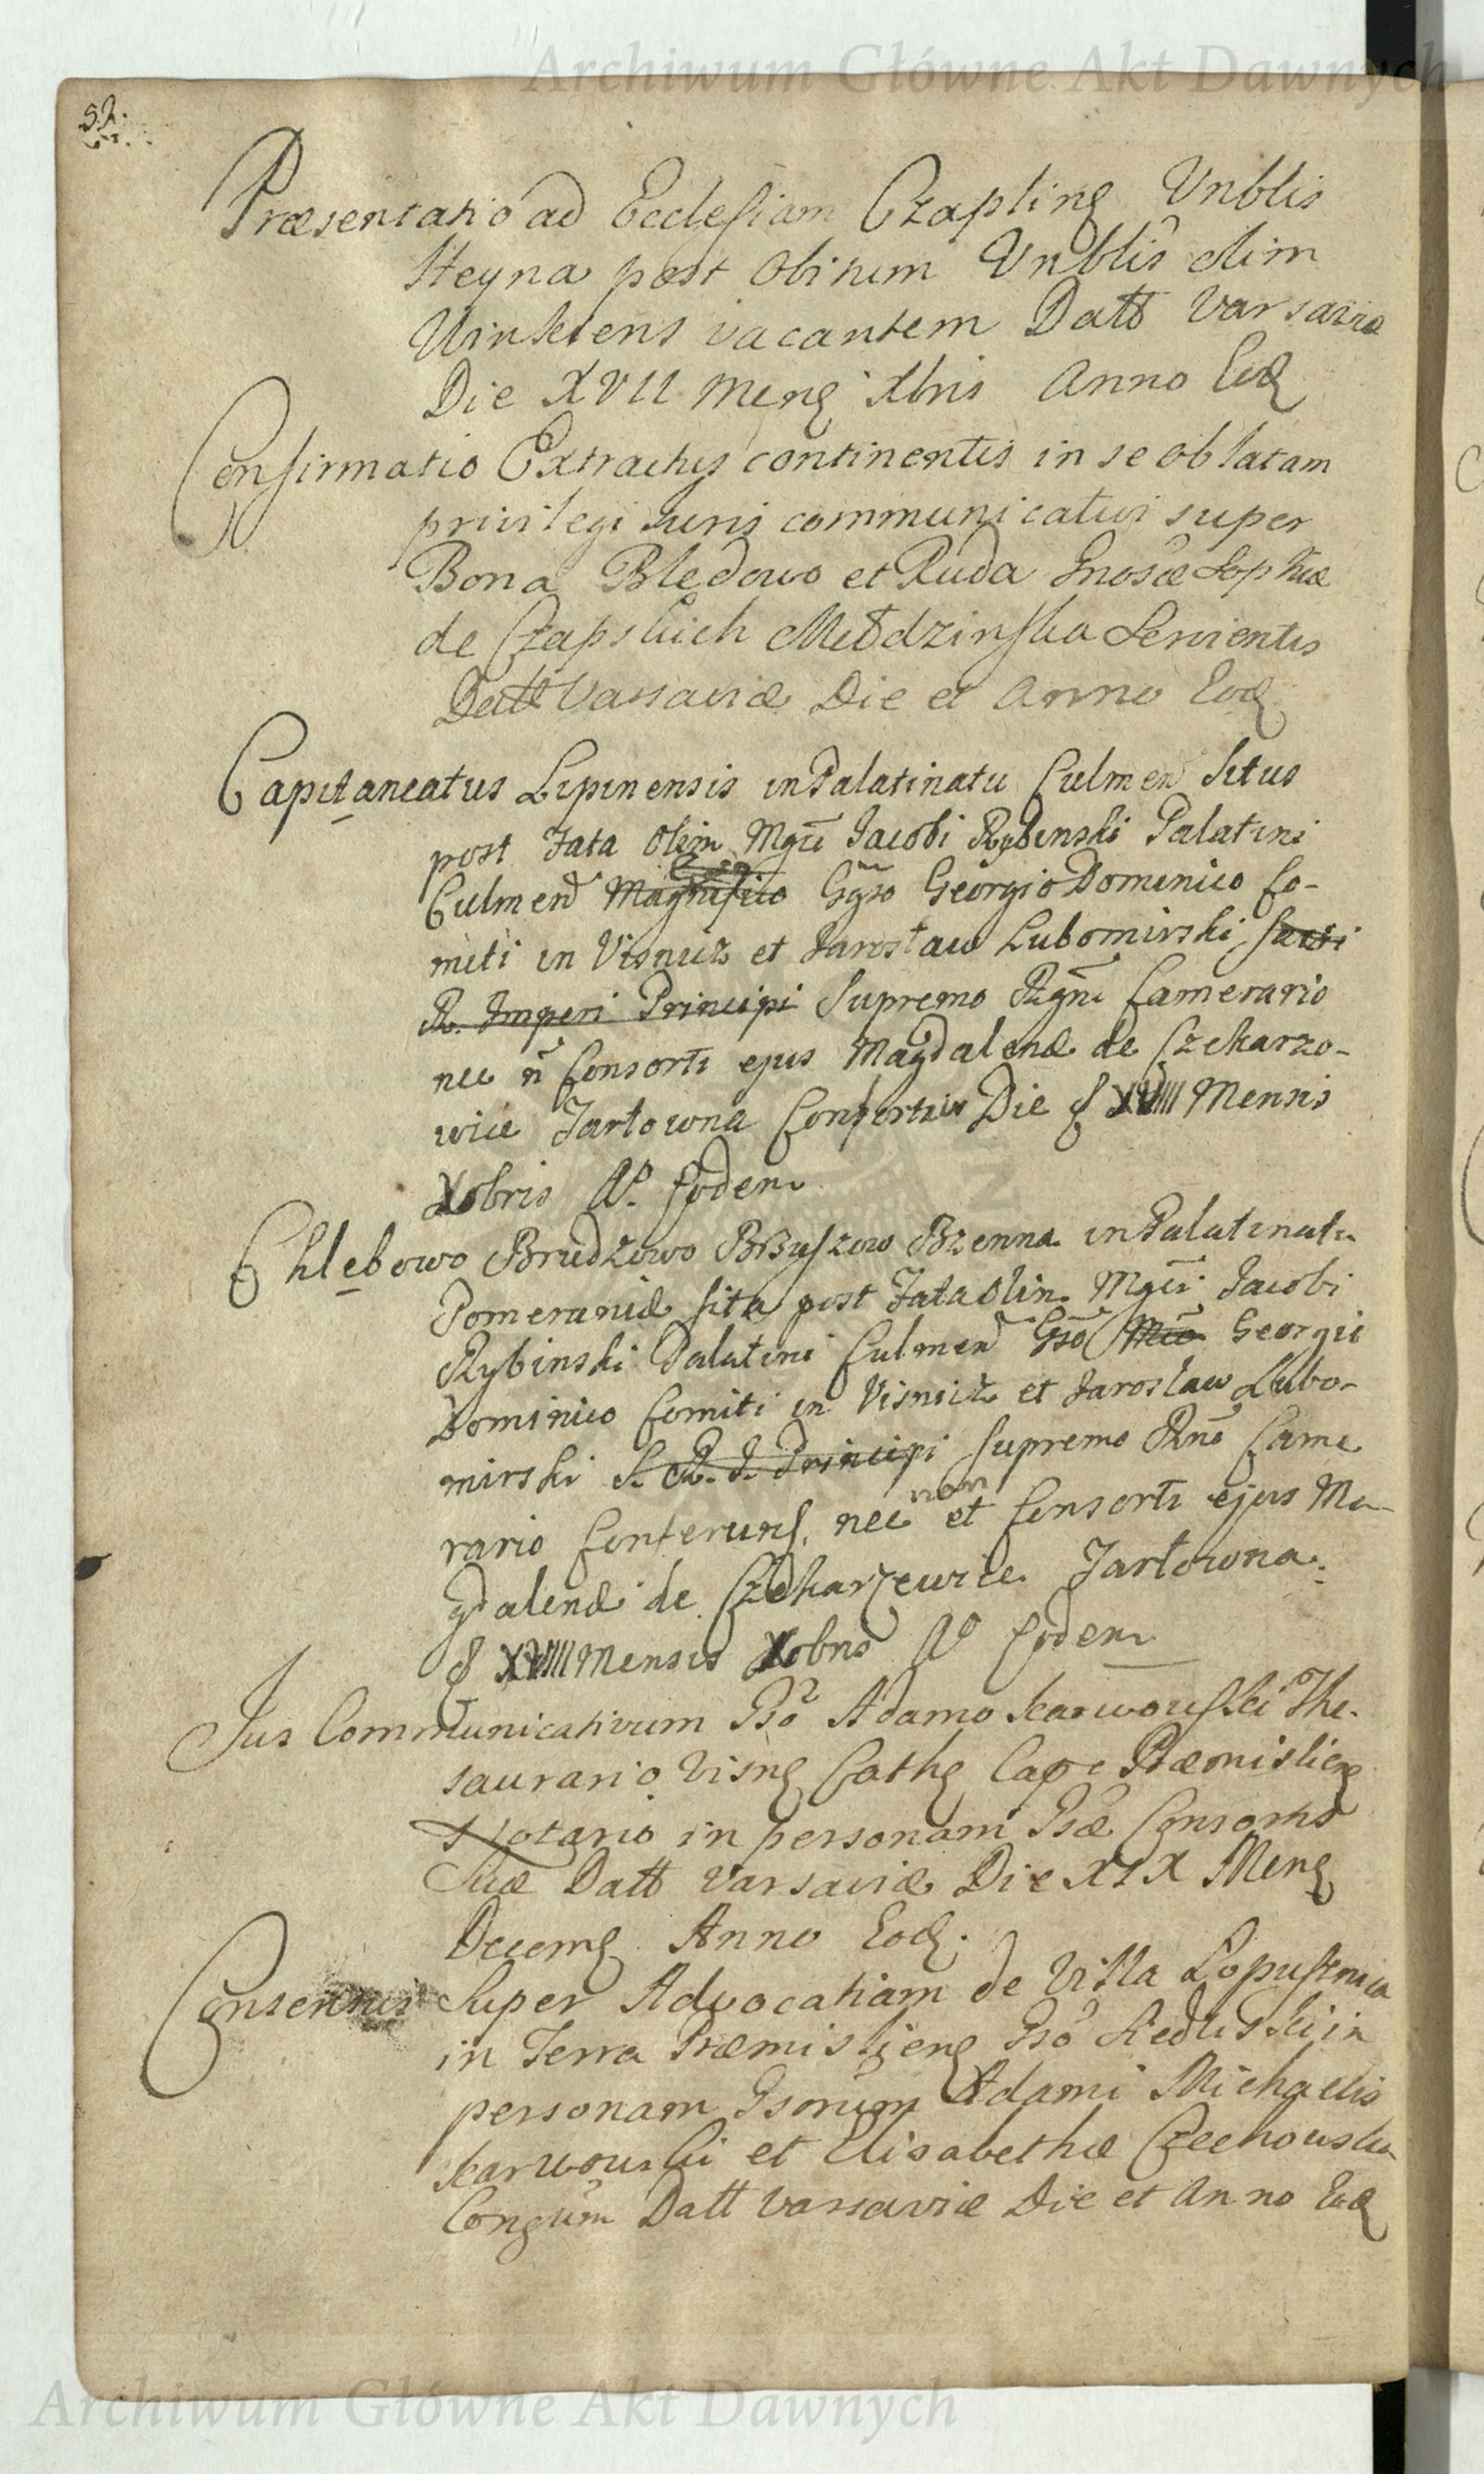 Archiwum Główne Akt Dawnych
52.
Præsentatio ad Ecclesiam Czapling Vnblis
Heyna post Obitum Vnblis olim
vacantem Datt Varsaviæ
Die XVII Meng Xbris Anno Eod
Confirmatio Extractus continentis in se oblatam
privilegi Juris communicativi super
Bona Bledowo et Ruda Gnosæ Sophiæ
de Czapskich Mełdzinska Servientis
Datt Varsaviæ Die et Anno Eod
Capitaneatus Lipinensis in Palatinatu Culmen Situs
post Fata Olim Mgci Jacobi Rybinski Palatini
Culmen Magnifico Georgio Dominico Co-
miti in Visnicz et Jarosław Lubomirski Sacri
R. Imperi Principi Supremo Regni Camerario
nec n Consorti ejus Magdalenæ de Czekarzo-
wice Tarłowna Confertur Die XVIII Mensis
Xobris Ao Eodem
Chlebowo Brudzowo Bzenna in Palatinatu
Pomeraniæ sita post Fata Olim Mgci Jacobi
Rybinski Palatini Culmen Gso Mco Georgii
Dominico Comiti in Visnicz et Jarosław Lubo-
mirski S. R. I. Principi Supremo Rni Came
rario Conferuns. nec non et Consorti ejus Ma-
gdalenæ de Czekarzewice Tarłowna
XVIII Mensis Xobris Ao Eodem
Jus Communicativum Gso Adamo Karwowski The-
saurario Visng Cathg Cap Præmislieng
Notario in personam Gsæ Consortis
Suæ Datt Varsaviæ Die XIX Meng
Decemg Anno Eod.
Consensus Super Advocatiam de Villa Łopusznica
in Terra Præmislieng Gso Siedliski in
personam Gsorum Adami Michaelis
Karwowski et Elisabethæ Czechowska
Congum Datt Varsaviæ Die et Anno Eod
Archiwum Główne Akt Dawnych